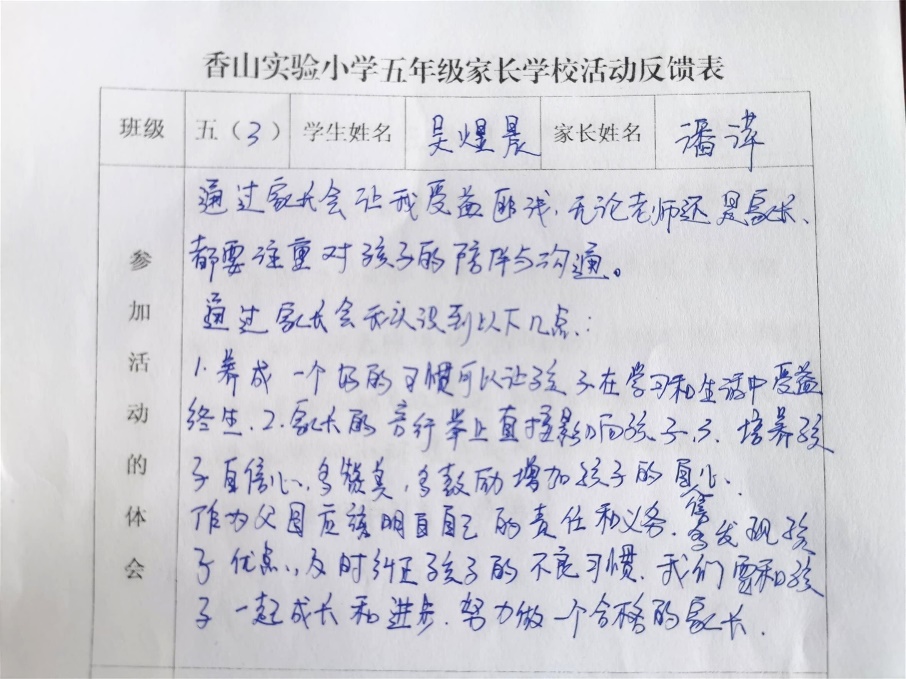 香山实验小学五年级家长学校活动反馈表
班级 五（3） 学生姓名 吴煜晨 家长姓名 潘萍
参加活动的体会
通过家长会让我受益匪浅，无论老师还是家长、
都要注重对孩子的陪伴与沟通。
通过家长会我认识到以下几点：
1.养成一个好的习惯可以让孩子在学习和生活中受益
终生.2.家长的言行举止直接影响孩子.3.培养孩
子自信心、多赞美，多鼓励增加孩子的自信心.
作为父母应该明白自己的责任和义务.多发现孩
子优点，及时纠正孩子的不良习惯.我们要和孩
子一起成长和进步.努力做一个合格的家长.